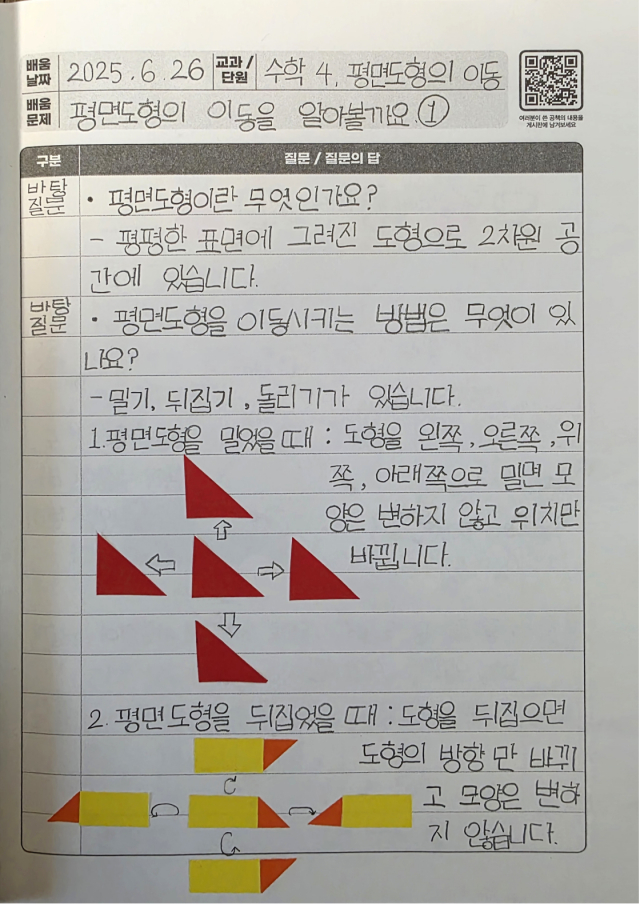 배움 날짜 2025.6.26 교과/단원 수학 4. 평면도형의 이동
배움 문제 평면도형의 이동을 알아볼까요.①
여러분이 쓴 공책의 내용을
게시판에 남겨보세요
구분 질문 / 질문의 답
바탕 질문 • 평면도형이란 무엇인가요?
- 평평한 표면에 그려진 도형으로 2차원 공
간에 있습니다.
바탕 질문 • 평면도형을 이동시키는 방법은 무엇이 있
나요?
- 밀기, 뒤집기, 돌리기가 있습니다.
1. 평면도형을 밀었을 때 : 도형을 왼쪽, 오른쪽, 위
쪽, 아래쪽으로 밀면 모
양은 변하지 않고 위치만
바뀝니다.
2. 평면도형을 뒤집었을 때 : 도형을 뒤집으면
도형의 방향만 바뀌
고 모양은 변하
지 않습니다.